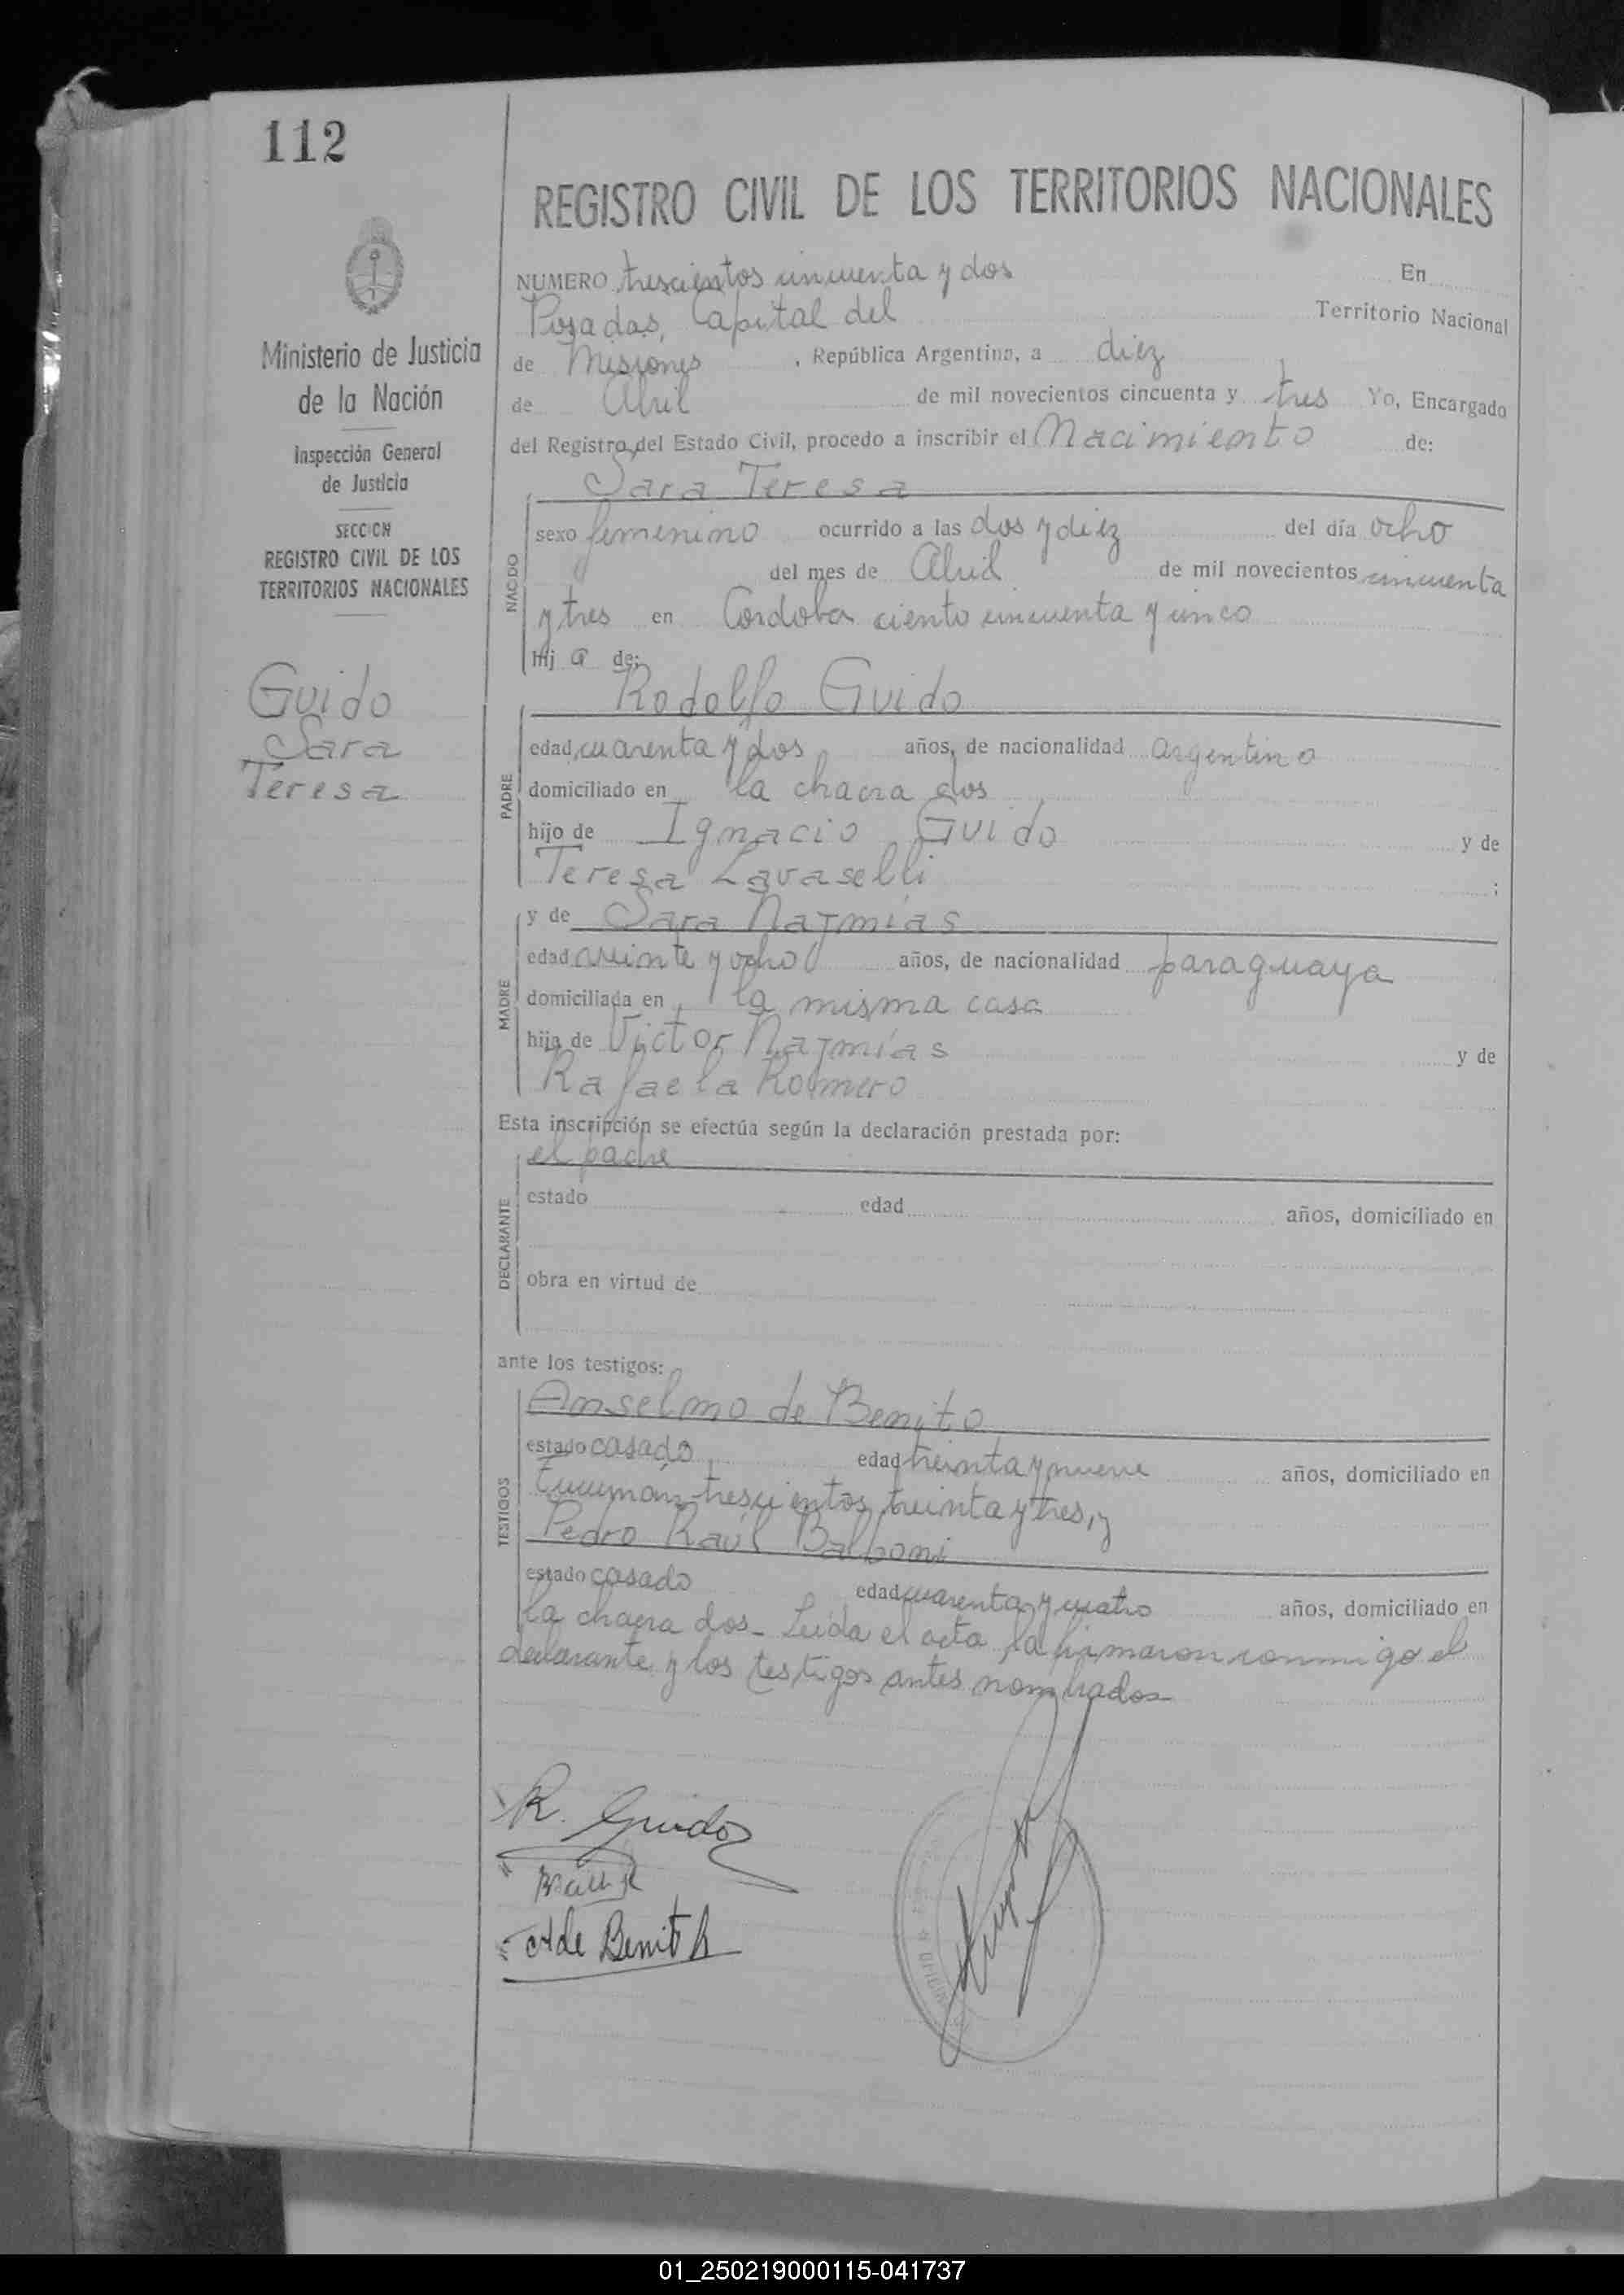 112
REGISTRO CIVIL DE LOS TERRITORIOS NACIONALES
Ministerio de Justicia
de la Nación
Inspección General
de Justicia
SECCION
REGISTRO CIVIL DE LOS
TERRITORIOS NACIONALES
Guido
Sara
Teresa
NUMERO trescientos cincuenta y dos En
Posadas, Capital del Territorio Nacional
de Misiones, República Argentina, a diez
de Abril de mil novecientos cincuenta y tres Yo, Encargado
del Registro del Estado Civil, procedo a inscribir el Nacimiento de:
Sara Teresa
NACIDO
sexo femenino ocurrido a las dos y diez del día ocho
del mes de Abril de mil novecientos cincuenta
y tres en Cordoba ciento cincuenta y cinco
hij a de:
Rodolfo Guido
PADRE
edad cuarenta y dos años, de nacionalidad argentino
domiciliado en la chacra dos
hijo de Ignacio Guido y de
Teresa Lavaselli ;
MADRE
y de Sara Najmías
edad veinte y ocho años, de nacionalidad paraguaya
domiciliada en la misma casa
hija de Victor Najmías y de
Rafaela Romero
Esta inscripción se efectúa según la declaración prestada por:
el padre
DECLARANTE
estado edad años, domiciliado en
obra en virtud de
ante los testigos:
TESTIGOS
Anselmo de Benito
estado casado edad treinta y nueve años, domiciliado en
Tucumán trescientos treinta y tres, y
Pedro Raúl Balboni
estado casado edad cuarenta y cuatro años, domiciliado en
la chacra dos - Leida el acta, la firmaron conmigo el
declarante y los testigos antes nombrados
R. Guido
A de Benito
01_250219000115-041737